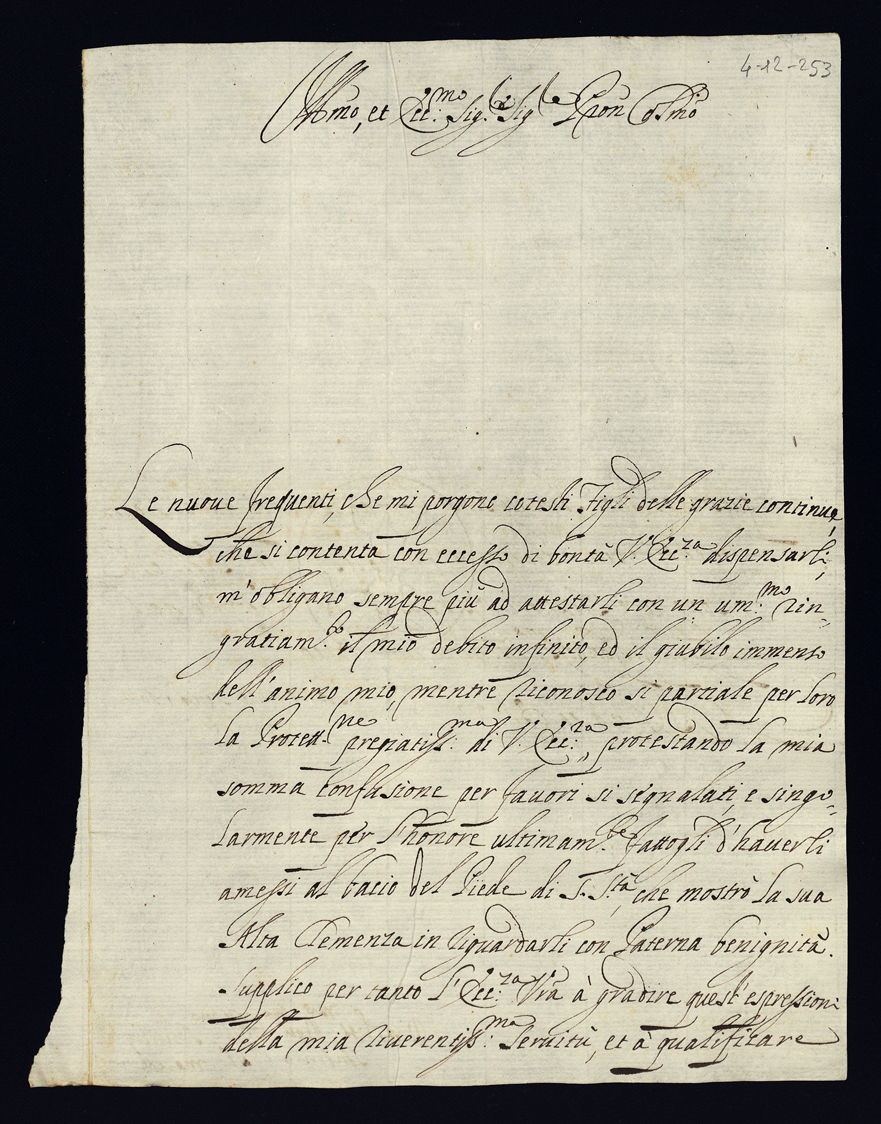 4-12-253
Ill.mo, et Ecc:mo Sig.re Sig.re Pron Col.mo
Le nuove frequenti, che mi porgono cotesti Figli delle grazie continue,
che si contenta con eccesso di bontà V. Ecc:za dispensarli,
m'obligano sempre più ad attestarli con un um:mo rin,
gratiam.to il mio debito infinito, ed il giubilo immenso
dell'animo mio, mentre riconosco si partiale per loro
la Protett.ne pregiatiss:ma di V. Ecc:za, protestando la mia
somma confusione per favori si segnalati, e singo=
larmente per l'honore ultimam.te fattogli d'haverli
amessi al bacio del Piede di S. S.tà, che mostrò la sua
Alta Clemenza in riguardarli con Paterna benignità.
Supplico per tanto l'Ecc:za Vrā à gradire quest'espressioni
della mia riverentiss:ma Servitù, et à qualificare